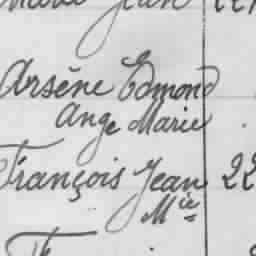 Marie Jean
Arsène Edmond
Ange Marie
François Jean 22
Mie